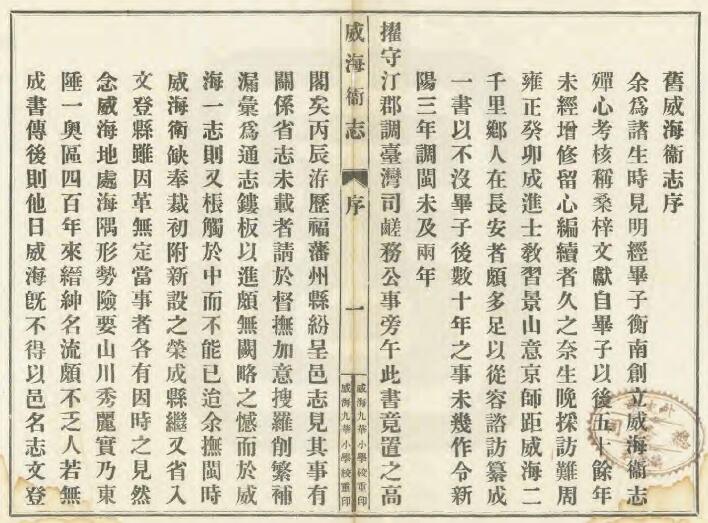 舊威海衞志序
余爲諸生時見明經畢子衡南創立威海衞志
殫心考核稱桑梓文獻自畢子以後五十餘年
未經增修留心編續者久之奈生晚採訪難周
雍正癸卯成進士敎習景山意京師距威海二
千里鄕人在長安者頗多足以從容諮訪纂成
一書以不沒畢子後數十年之事未幾作令新
陽三年調閩未及兩年
擢守汀郡調臺灣司鹺務公事旁午此書竟置之高
威海衞志
序
一
威海九華小學校重印
威海九華小學校重印
閣矣丙辰洊歷福藩州縣紛呈邑志見其事有
關係省志未載者請於督撫加意搜羅削繁補
漏彙爲通志鏤板以進頗無闕略之憾而於威
海一志則又棖觸於中而不能已迨余撫閩時
威海衞缺奉裁初附新設之榮成縣繼又省入
文登縣雖因革無定當事者各有因時之見然
念威海地處海隅形勢險要山川秀麗實乃東
陲一奧區四百年來縉紳名流頗不乏人若無
成書傳後則他日威海旣不得以邑名志文登